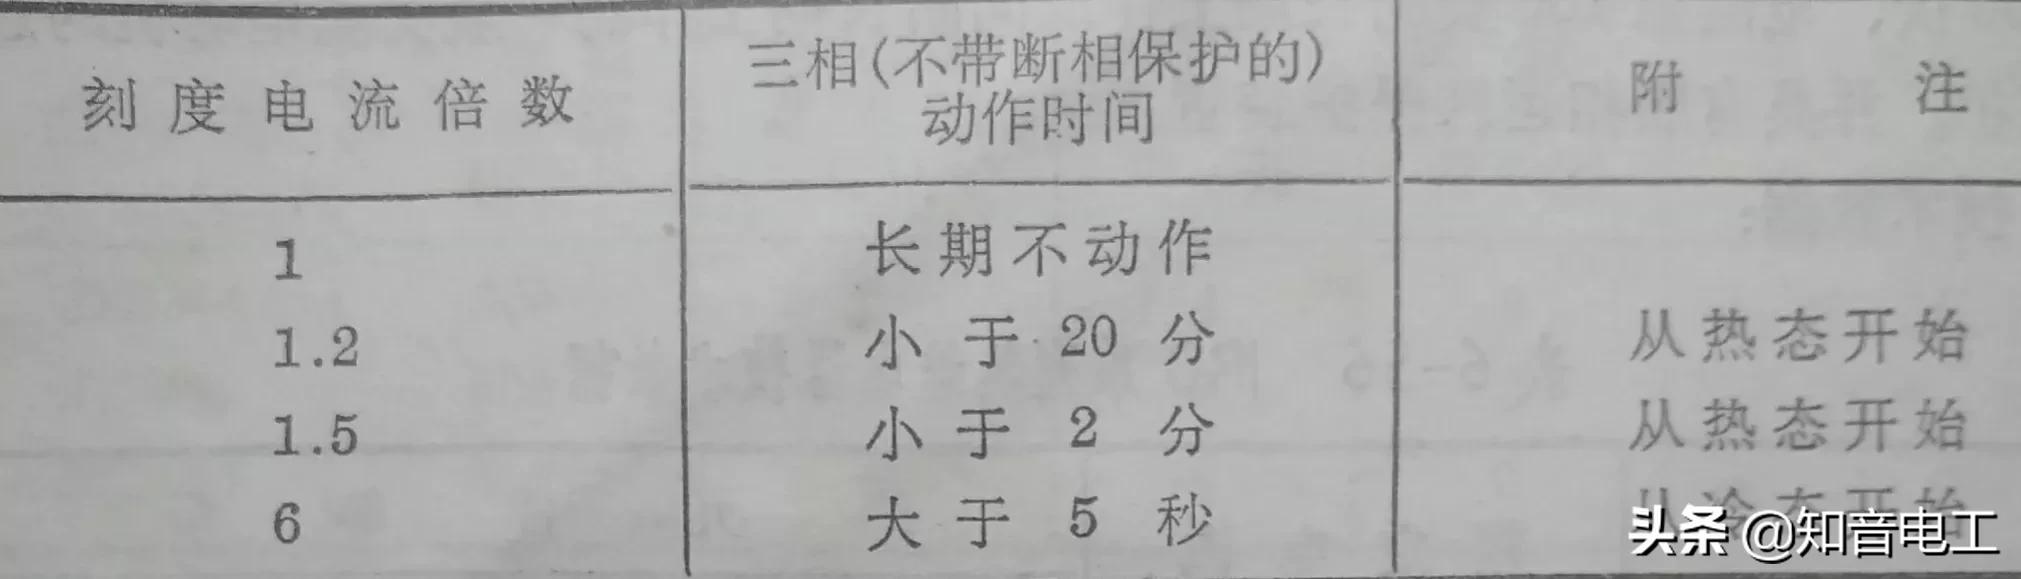 刻度电流倍数
三相(不带断相保护的)
动作时间
附 注
1 长期不动作
1.2 小于 20 分 从热态开始
1.5 小于 2 分 从热态开始
6 大于 5 秒 从冷态开始
头条@知音电工